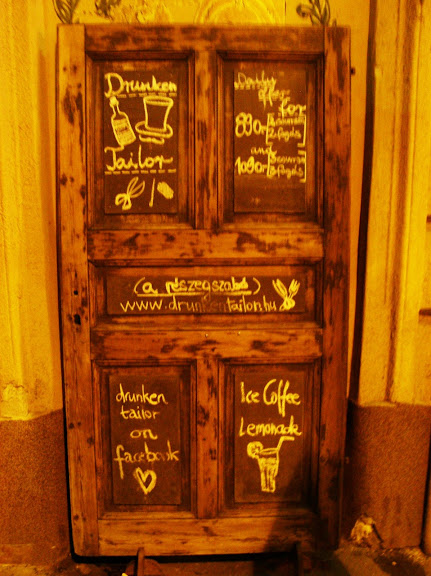 Drunken
Tailor
offer
for
890
2 fogás
and
1090
3 fogás
(a részegszabó)
www.drunkentailor.hu
drunken
tailor
on
facebook
Ice Coffee
Lemonade